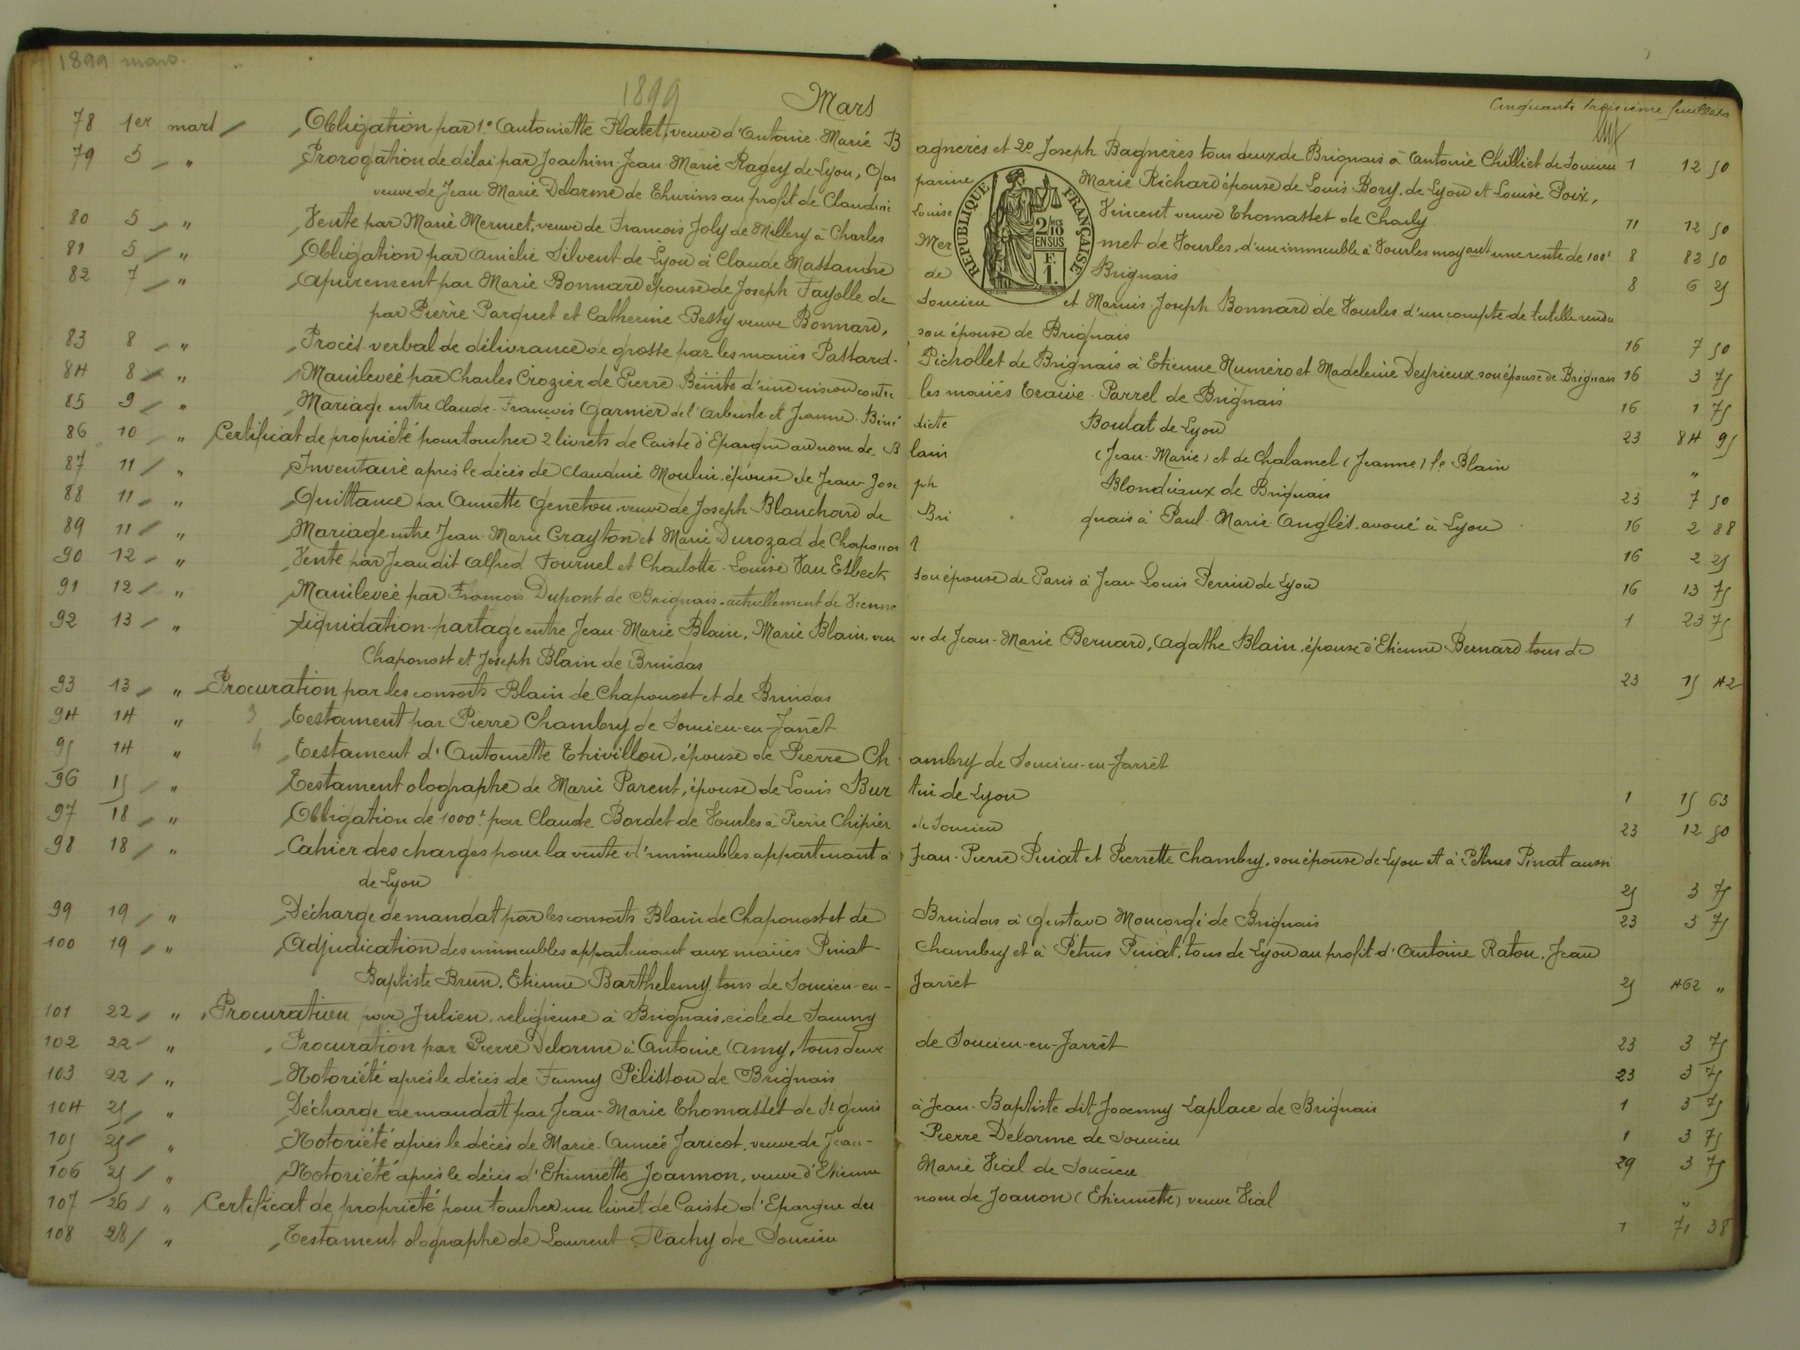 1899 mars.
1899
Mars
Cinquante troisième feuillets
78 1er mars Obligation par 1º Antoinette Platet, veuve d'Antoine Marie Bagnères et 2º Joseph Bagnères tous deux de Brignais à Antoine Chilliet de Soucieu 1 12 50
79 5 " Prorogation de délai par Joachim Jean Marie Ragey de Lyon, Gasparine Marie Richard épouse de Louis Bory, de Lyon et Louise Poix,
veuve de Jean Marie Delorme de Thurins au profit de Claudine Louise Vincent veuve Thomasset de Charly 11 12 50
80 5 " Vente par Marie Mermet, veuve de Francois Joly de Millery à Charles Mermet de Vourles, d'un immeuble à Vourles moyant une rente de 100f 8 82 50
81 5 " Obligation par Amélie Silvent de Lyon à Claude Massandre de Brignais 8 6 25
82 7 " Apurement par Marie Bonnard épouse de Joseph Fayolle de Soucieu et Marius Joseph Bonnard de Vourles d'un compte de tutelle rendu
par Pierre Parquet et Catherine Besty veuve Bonnard, son épouse de Brignais 16 7 50
83 8 " Procès verbal de délivrance de grosse par les mariés Passard-Pichollet de Brignais à Etienne Numéro et Madeleine Deyrieux son épouse de Brignais 16 3 75
84 8 " Mainlevée par Charles Crozier de Pierre Bénite d'une inson contre les mariés Traive Parrel de Brignais 16 1 75
85 9 " Mariage entre Claude François Garnier de l'Arbresle et Jeanne Bénédicte Boulat de Lyon 23 84 95
86 10 " Certificat de propriété pour toucher 2 livrets de Caisse d'Epargne au nom de Blain (Jean-Marie) et de Chalamel (Jeanne) fe Blain "
87 11 " Inventaire après le décès de Claudine Moulin épouse de Jean-Joseph Blondeaux de Brignais 23 7 50
88 11 " Quittance par Annette Geneton veuve de Joseph Blanchard de Brignais à Paul Marie Anglès, avoué à Lyon 16 2 88
89 11 " Mariage entre Jean Marie Crayton et Marie Durozad de Chaponost 16 2 25
90 12 " Vente par Jean dit Alfred Fournel et Charlotte Louise Van Esbeck son épouse de Paris à Jean Louis Perrin de Lyon 16 13 75
91 12 " Mainlevée par François Dupont de Brignais actuellement de Vienne 1 23 75
92 13 " Liquidation-partage entre Jean Marie Blain, Marie Blain, veuve de Jean-Marie Bernard, Agathe Blain épouse d'Etienne Bernard tous de
Chaponost et Joseph Blain de Brindas 23 15 42
93 13 " Procuration par les consorts Blain de Chaponost et de Brindas
94 14 " 3 Testament par Pierre Chambry de Soucieu-en-Jarrêt
95 14 " Testament d'Antoinette Thivillon, épouse de Pierre Chambry de Soucieu-en-Jarrêt
96 15 " Testament olographe de Marie Parent, épouse de Louis Burtin de Lyon 1 15 63
97 18 " Obligation de 1000f par Claude Bordet de Vourles à Pierre Chipier de Soucieu 23 12 50
98 18 " Cahier des charges pour la vente d'immeubles appartenant à Jean-Pierre Piniat et Pierrette Chambry, son épouse de Lyon et à Pétrus Piniat aussi
de Lyon 25 3 75
99 19 " Décharge de mandat par les consorts Blain de Chaponost et de Brindas à Gustave Moncorgé de Brignais 23 3 75
100 19 " Adjudication des immeubles appartenant aux mariés Piniat-Chambry et à Pétrus Piniat, tous de Lyon au profit d'Antoine Raton, Jean
Baptiste Brun, Etienne Barthelemy tous de Soucieu-en-Jarrêt 25 462 "
101 22 " Procuration pour Julien, religieuse à Brignais, école de
102 22 " Procuration par Pierre Delorme à Antoine Camy, tous deux de Soucieu-en-Jarrêt 23 3 75
103 22 " Notoriété après le décès de Fanny Pélisson de Brignais 23 3 75
104 25 " Décharge de mandat par Jean-Marie Thomasset de St Genis à Jean-Baptiste dit Joanny Laplace de Brignais 1 3 75
105 25 " Notoriété après le décès de Marie-Année Jaricot, veuve de Jean-Pierre Delorme de Soucieu 1 3 75
106 25 " Notoriété après le décès d'Etiennette Joannon, veuve d'Etienne Marie Vial de Soucieu 29 3 75
107 26 " Certificat de propriété pour toucher un livret de Caisse d'Epargne du nom de Joanon (Etiennette) veuve Vial "
108 28 " Testament olographe de Laurent Flachy de Soucieu 1 71 38
RÉPUBLIQUE FRANÇAISE
2/10 EN SUS
F. 1.